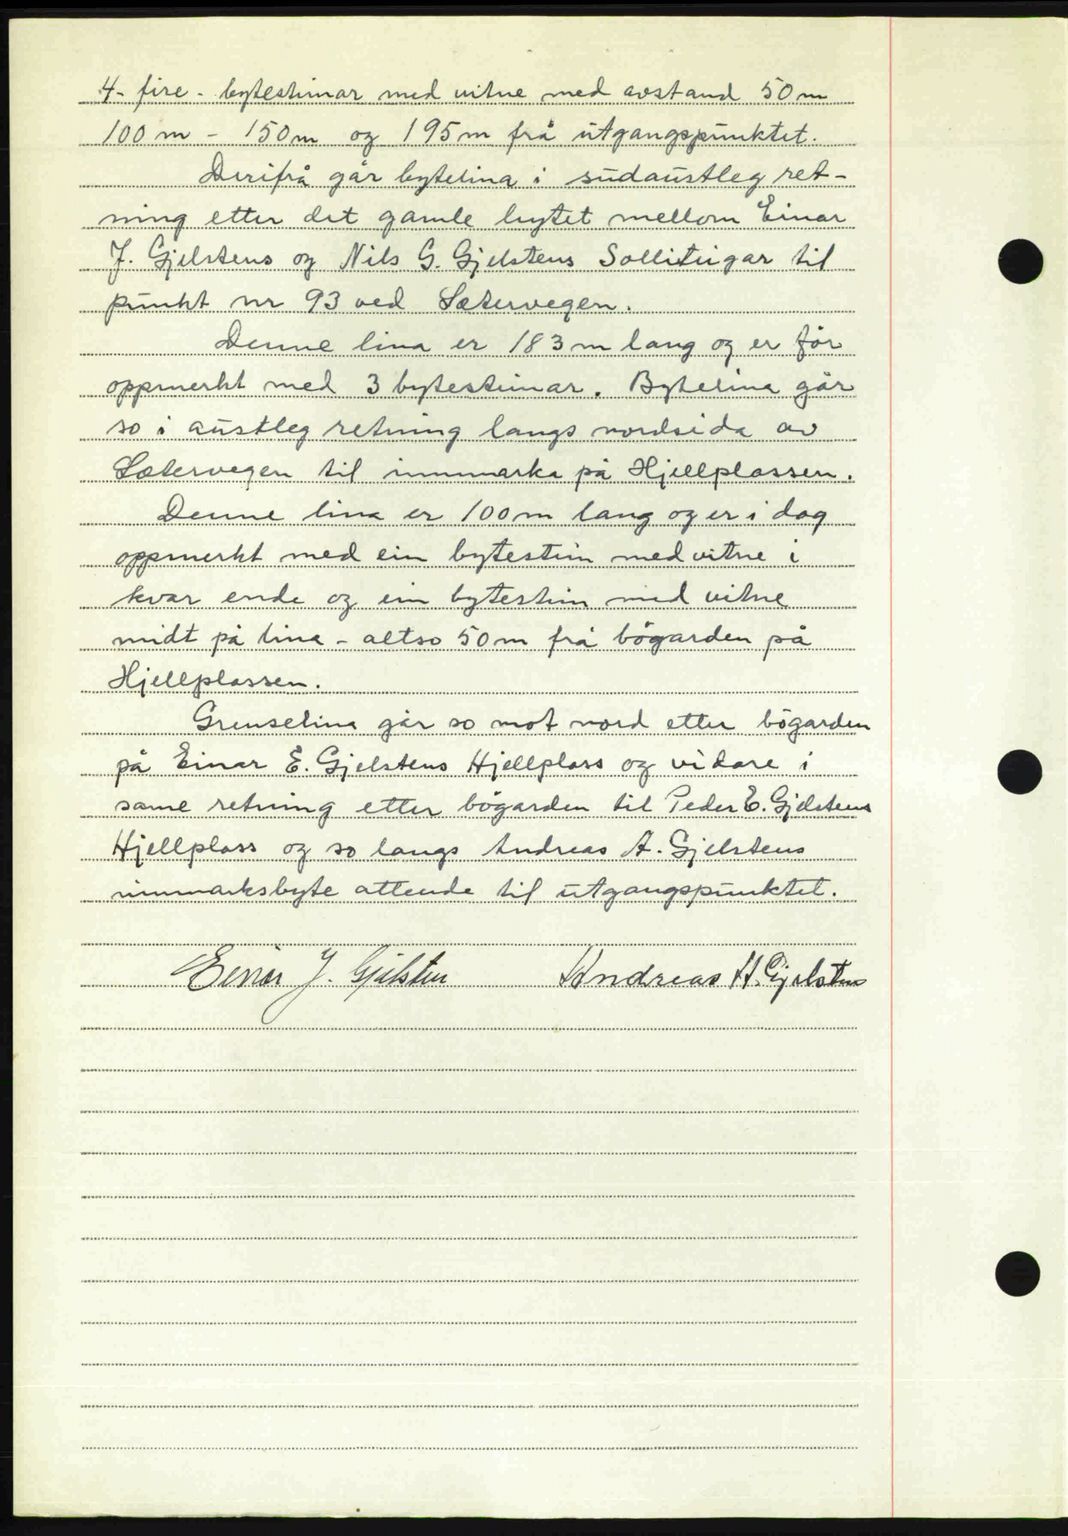 4- fire - bytesteinar med vitne med avstand 50 m
100 m - 150 m og 195 m frå utgangspunktet.
Derifrå går bytelina i sudaustleg ret-
ning etter det gamle bytet mellom Einar
J. Gjelstens og Nils G. Gjelstens til
punkt nr 93 ved Sætervegen.
Denne lina er 183 m lang og er før
oppmerkt med 3 bytesteinar. Bytelina går
so i austleg retning langs nordsida av
Sætervegen til innmarka på Hjellplassen.
Denne lina er 100 m lang og er i dag
oppmerkt med ein bytestein med vitne i
kvar ende og ein bytestein med vitne
midt på lina - altso 50 m frå bøgarden på
Hjellplassen.
Grenselina går so mot nord etter bøgarden
på Einar E. Gjelstens Hjellplass og vidare i
same retning etter bøgarden til Peder E. Gjelstens
Hjellplass og so langs Andreas A. Gjelstens
innmarksbyte attende til utgangspunktet.
Einar J. Gjelsten Andreas A. Gjelsten